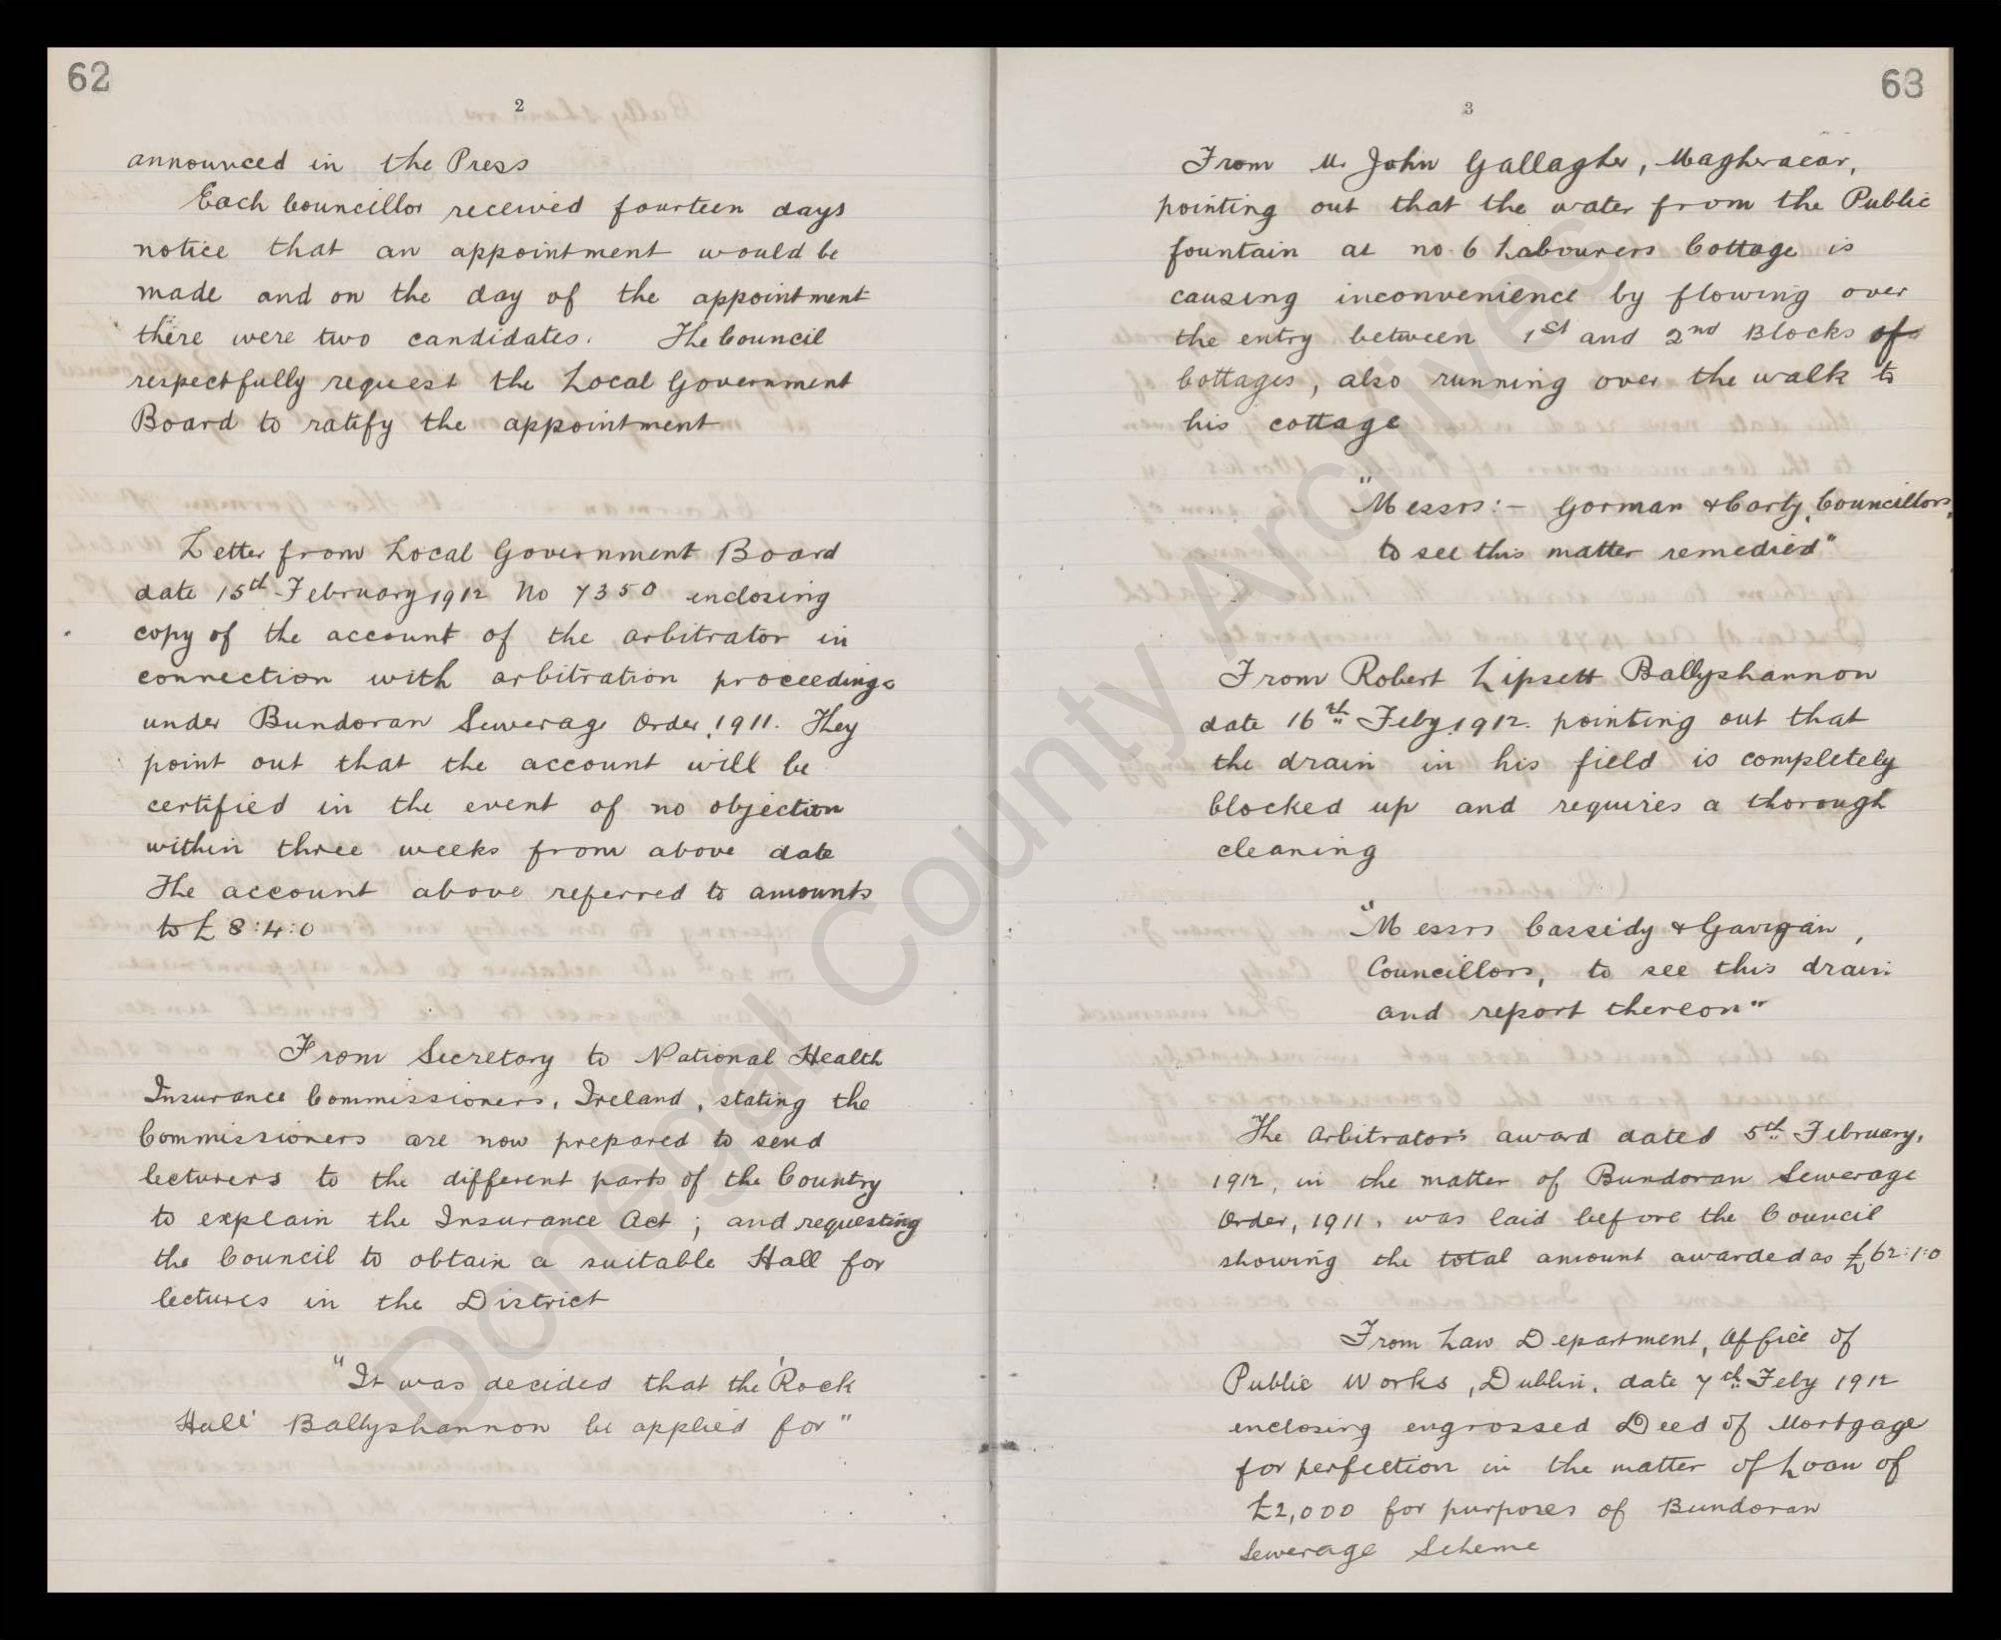 62
2
announced in the Press
Each Councillor received fourteen days
notice that an appointment would be
made and on the day of the appointment
there were two candidates. The Council
respectfully request the Local Government
Board to ratify the appointment
Letter from Local Government Board
date 15th February 1912 No 7350 enclosing
copy of the account of the arbitrator in
connection with arbitration proceedings
under Bundoran Sewerage Order, 1911. They
point out that the account will be
certified in the event of no objection
within three weeks from above date
The account above referred to amounts
to £8:4:0
From Secretary to National Health
Insurance Commissioners, Ireland, stating the
Commissioners are now prepared to send
lecturers to the different parts of the Country
to explain the Insurance Act; and requesting
the Council to obtain a suitable Hall for
lectures in the District
"It was decided that the 'Rock
Hall' Ballyshannon be applied for"
63
3
From Mr John Gallagher, Magheracar,
pointing out that the water from the Public
fountain at no. 6 Labourers Cottage is
causing inconvenience by flowing over
the entry between 1st and 2nd Blocks of
Cottages, also running over the walk to
his cottage
"Messrs:- Gorman & Carty, Councillors,
to see this matter remedied"
From Robert Lipsett Ballyshannon
date 16th Feby, 1912. pointing out that
the drain in his field is completely
blocked up and requires a thorough
cleaning
"Messrs Cassidy & Gavigan,
Councillors, to see this drain
and report thereon"
The Arbitrator's award dated 5th February,
1912, in the matter of Bundoran Sewerage
Order, 1911, was laid before the Council
showing the total amount awarded as £62:1:0
From Law Department, Office of
Public Works, Dublin, date 7th Feby 1912
enclosing engrossed Deed of Mortgage
for perfection in the matter of Loan of
£2,000 for purposes of Bundoran
Sewerage Scheme
Donegal County Archives